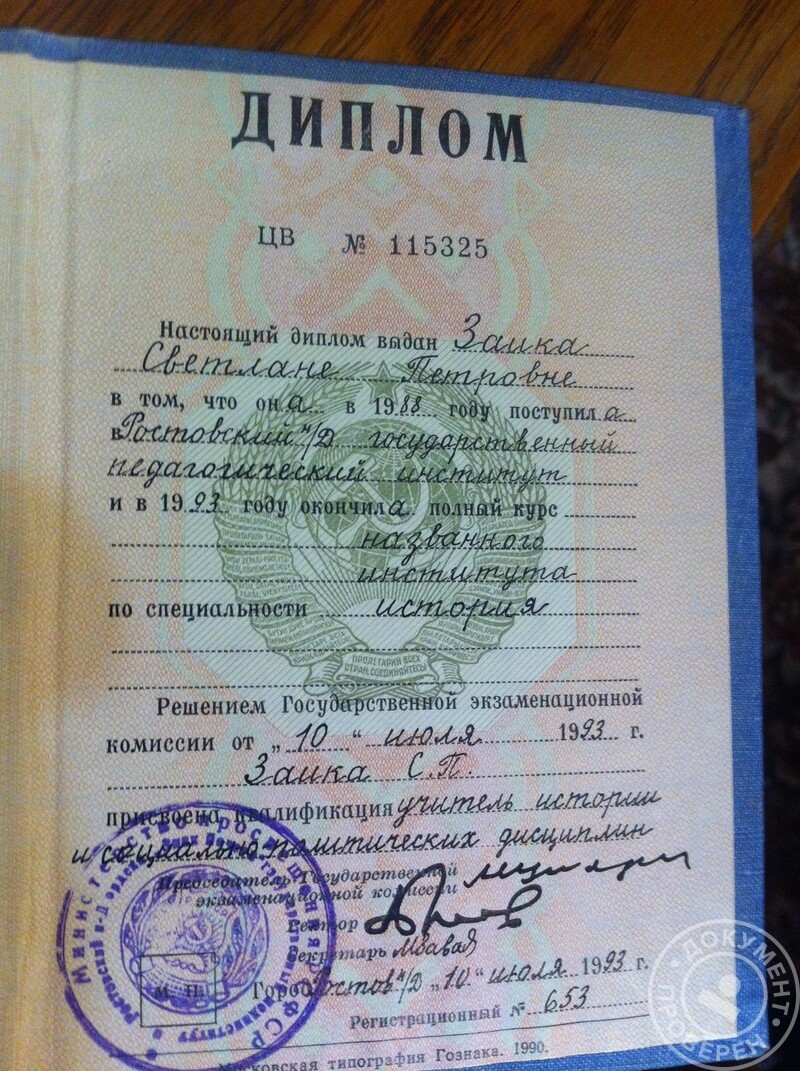 ДИПЛОМ
ЦВ № 115325
Настоящий диплом выдан Заика
Светлане Петровне
в том, что она в 1988 году поступила
в Ростовский н/Д государственный
педагогический институт
и в 1993 году окончила полный курс
названного
института
по специальности история
Решением Государственной экзаменационной
комиссии от „10“ июля 1993 г.
Заика С.П.
присвоена квалификация учитель истории
и социально-политических дисциплин
Председатель Государственной
экзаменационной комиссии
Ректор
Секретарь
М. П.
Город Ростов н/Д „10“ июля 1993 г.
Регистрационный № 653
Московская типография Гознака. 1990.
ПРОЛЕТАРИИ ВСЕХ
СТРАН, СОЕДИНЯЙТЕСЬ!
МИНИСТЕРСТВО ПРОСВЕЩЕНИЯ РСФСР
ДОКУМЕНТ ПРОВЕРЕН